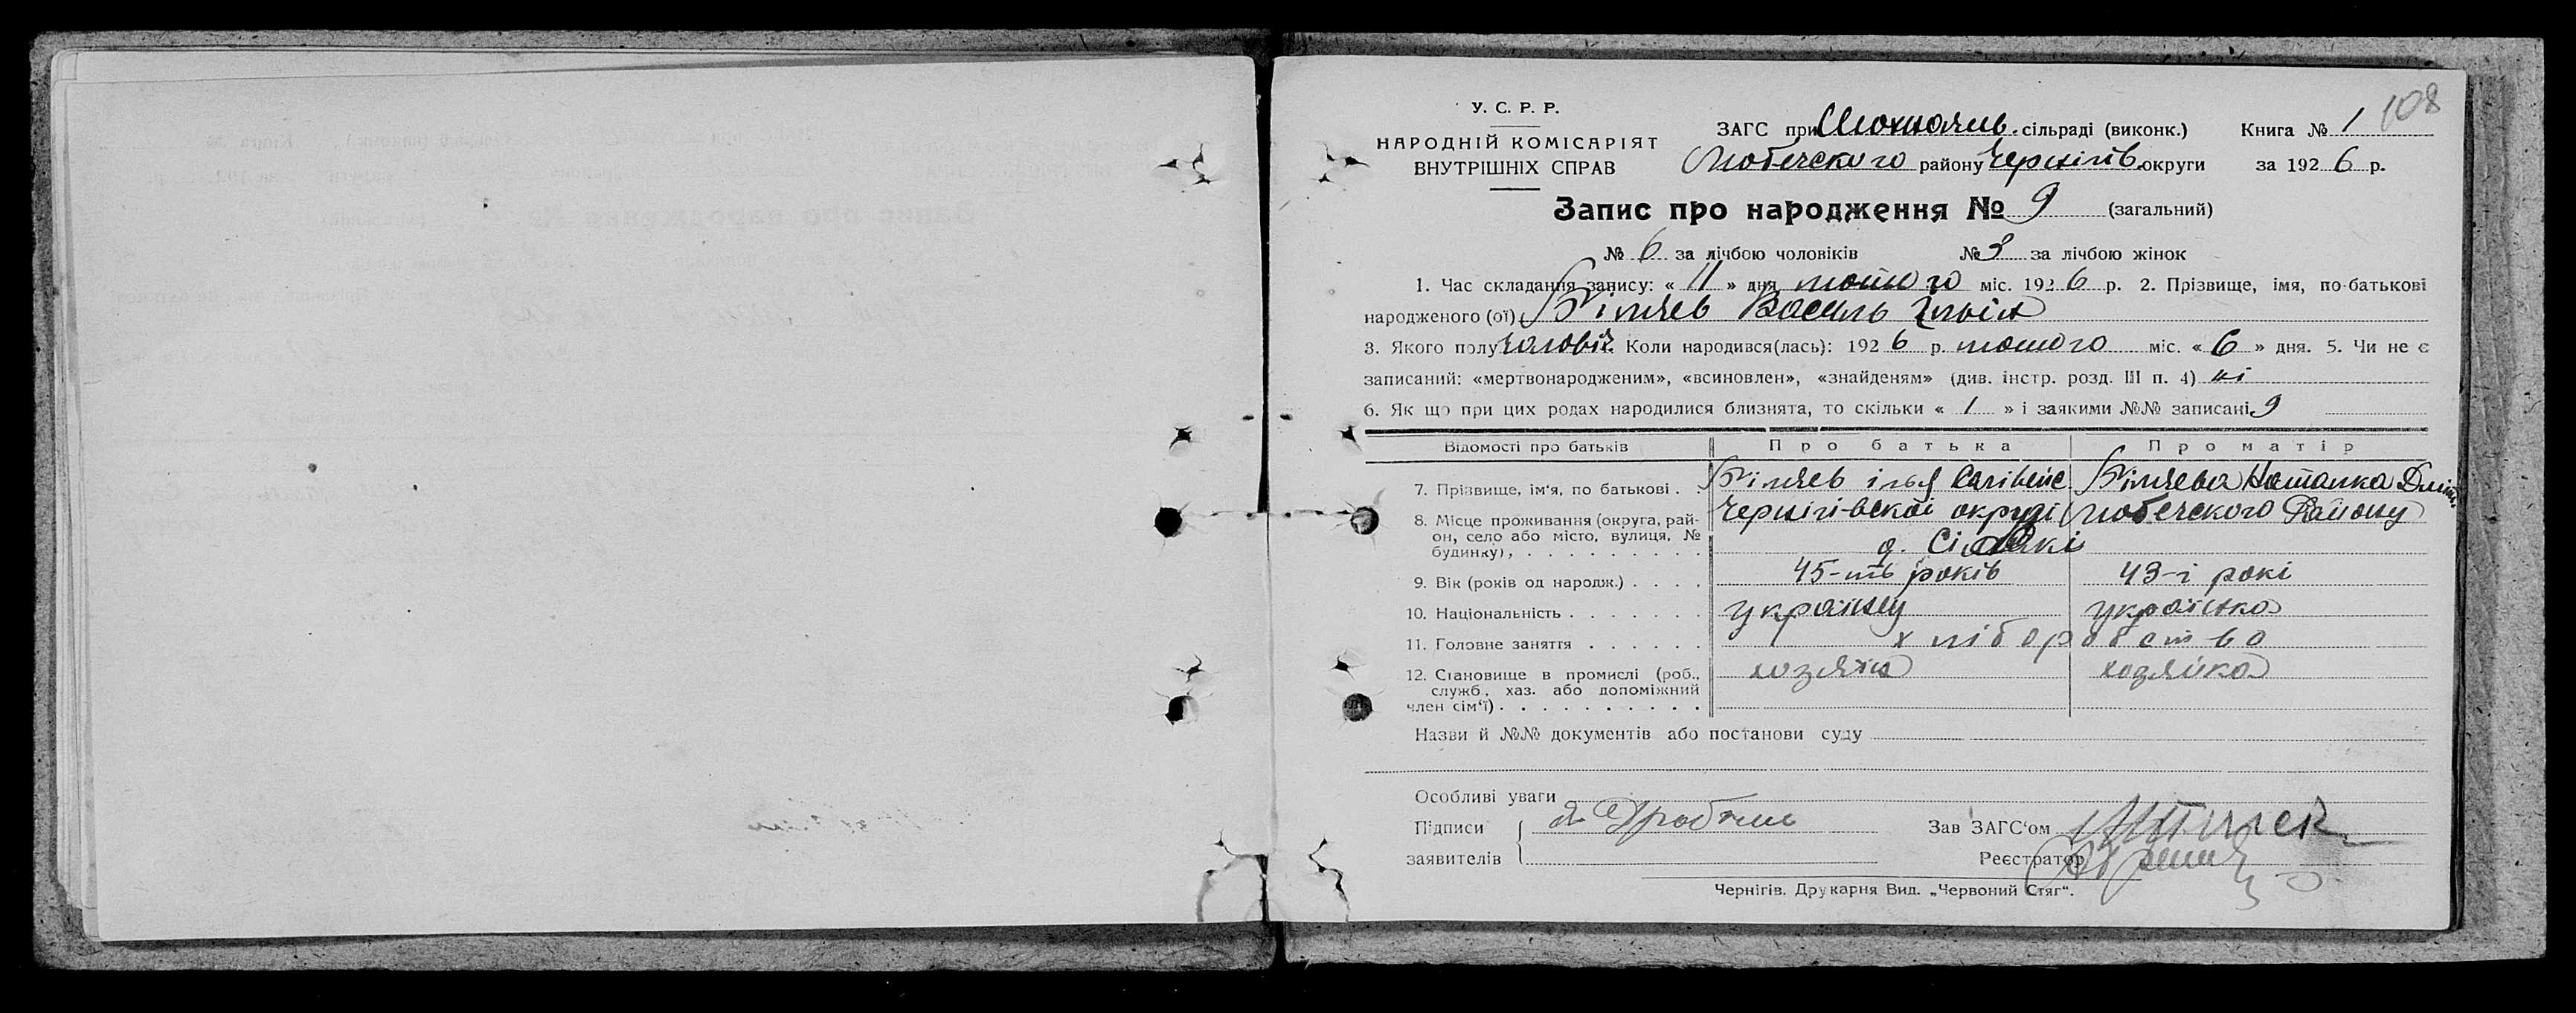 108
У. С. Р. Р.
НАРОДНІЙ КОМІСАРІЯТ
ВНУТРІШНІХ СПРАВ
ЗАГС при сільраді (виконк.) Книга № 1
Любечского району Чернігів. округи за 1926 р.
Запис про народження № 9 (загальний)
№ 6 за лічбою чоловіків № 3 за лічбою жінок
1. Час складання запису: « 11 » дня лютого міс. 1926 р. 2. Прізвище, імя, по-батькові
народженого (ої) Біляев Василь Ільїч
3. Якого полу чоловіч. Коли народився(лась): 1926 р. лютого міс. « 6 » дня. 5. Чи не є
записаний: «мертвонародженим», «всиновлен», «знайденям» (див. інстр. розд. III п. 4) ні
6. Як що при цих родах народилися близнята, то скільки « 1 » і заякими №№ записані 9
Відомості про батьків Про батька Про матір
7. Прізвище, ім'я, по батькові . . Біляев ілья Біляева Наталка Дміт.
8. Місце проживання (округа, рай- Чернігівскої округи Любечского Району
он, село або місто, вулиця, № д.
будинку), . . . . . . . . . .
9. Вік (років од народж.) . . . . 45-ть років 43-і рокі
10. Національність . . . . . . . українец українка
11. Головне заняття . . . . . . хліборобство
12. Становище в промислі (роб., хозяїн хозяйка
служб, хаз. або допоміжний
член сім'ї) . . . . . . . . . .
Назви й №№ документів або постанови суду
Особливі уваги
Підписи
заявителів
Зав ЗАГС'ом
Реєстратор
Чернігів. Друкарня Вид. „Червоний Стяг".